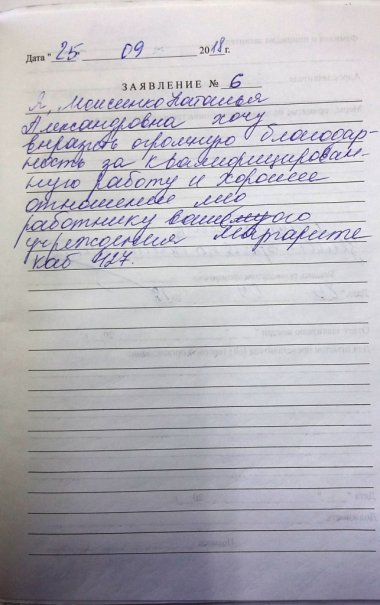 Дата " 25 09 2018 г.
ЗАЯВЛЕНИЕ № 6
Я, Моисеенко Наталья
Александровна хочу
выразить огромную благодар-
ность за квалифицирован-
ную работу и хорошее
отношение
работнику вашего
учреждения Маргарите
каб 427.